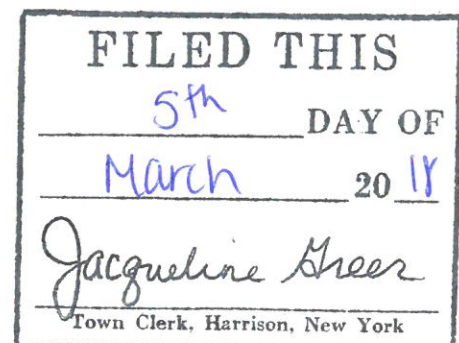 FILED THIS
5th DAY OF
March 20 18
Jacqueline Greer
Town Clerk, Harrison, New York